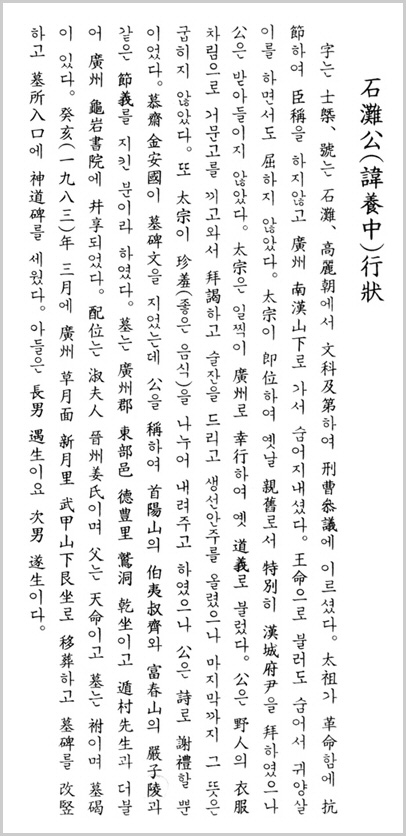 石灘公(諱養中)行狀
字는 士榘、號는 石灘、高麗朝에서 文科及第하여 刑曹叅議에 이르셨다。太祖가 革命함에 抗
節하여 臣稱을 하지않고 廣州 南漢山下로 가서 숨어지내셨다。王命으로 불러도 숨어서 귀양살
이를 하면서도 屈하지 않았다。太宗이 即位하여 옛날 親舊로서 特別히 漢城府尹을 拜하였으나
公은 받아들이지 않았다。太宗은 일찍이 廣州로 幸行하여 옛 道義로 불렀다。公은 野人의 衣服
차림으로 거문고를 끼고와서 拜謁하고 술잔을 드리고 생선안주를 올렸으나 마지막까지 그 뜻은
굽히지 않았다。또 太宗이 珍羞(좋은 음식)을 나누어 내려주고 하였으나 公은 詩로 謝禮할 뿐
이었다。慕齋 金安國이 墓碑文을 지었는데 公을 稱하여 首陽山의 伯夷叔齊와 富春山의 嚴子陵과
같은 節義를 지킨 분이라 하였다。墓는 廣州郡 東部邑 德豊里 鷲洞 乾坐이고 遁村先生과 더불
어 廣州 龜岩書院에 幷享되었다。配位는 淑夫人 晉州姜氏이며 父는 天命이고 墓는 祔이며 墓碣
이 있다。癸亥(一九八三)年 三月에 廣州 草月面 新月里 武甲山下艮坐로 移葬하고 墓碑를 改竪
하고 墓所入口에 神道碑를 세웠다。아들은 長男 遇生이요 次男 遂生이다。